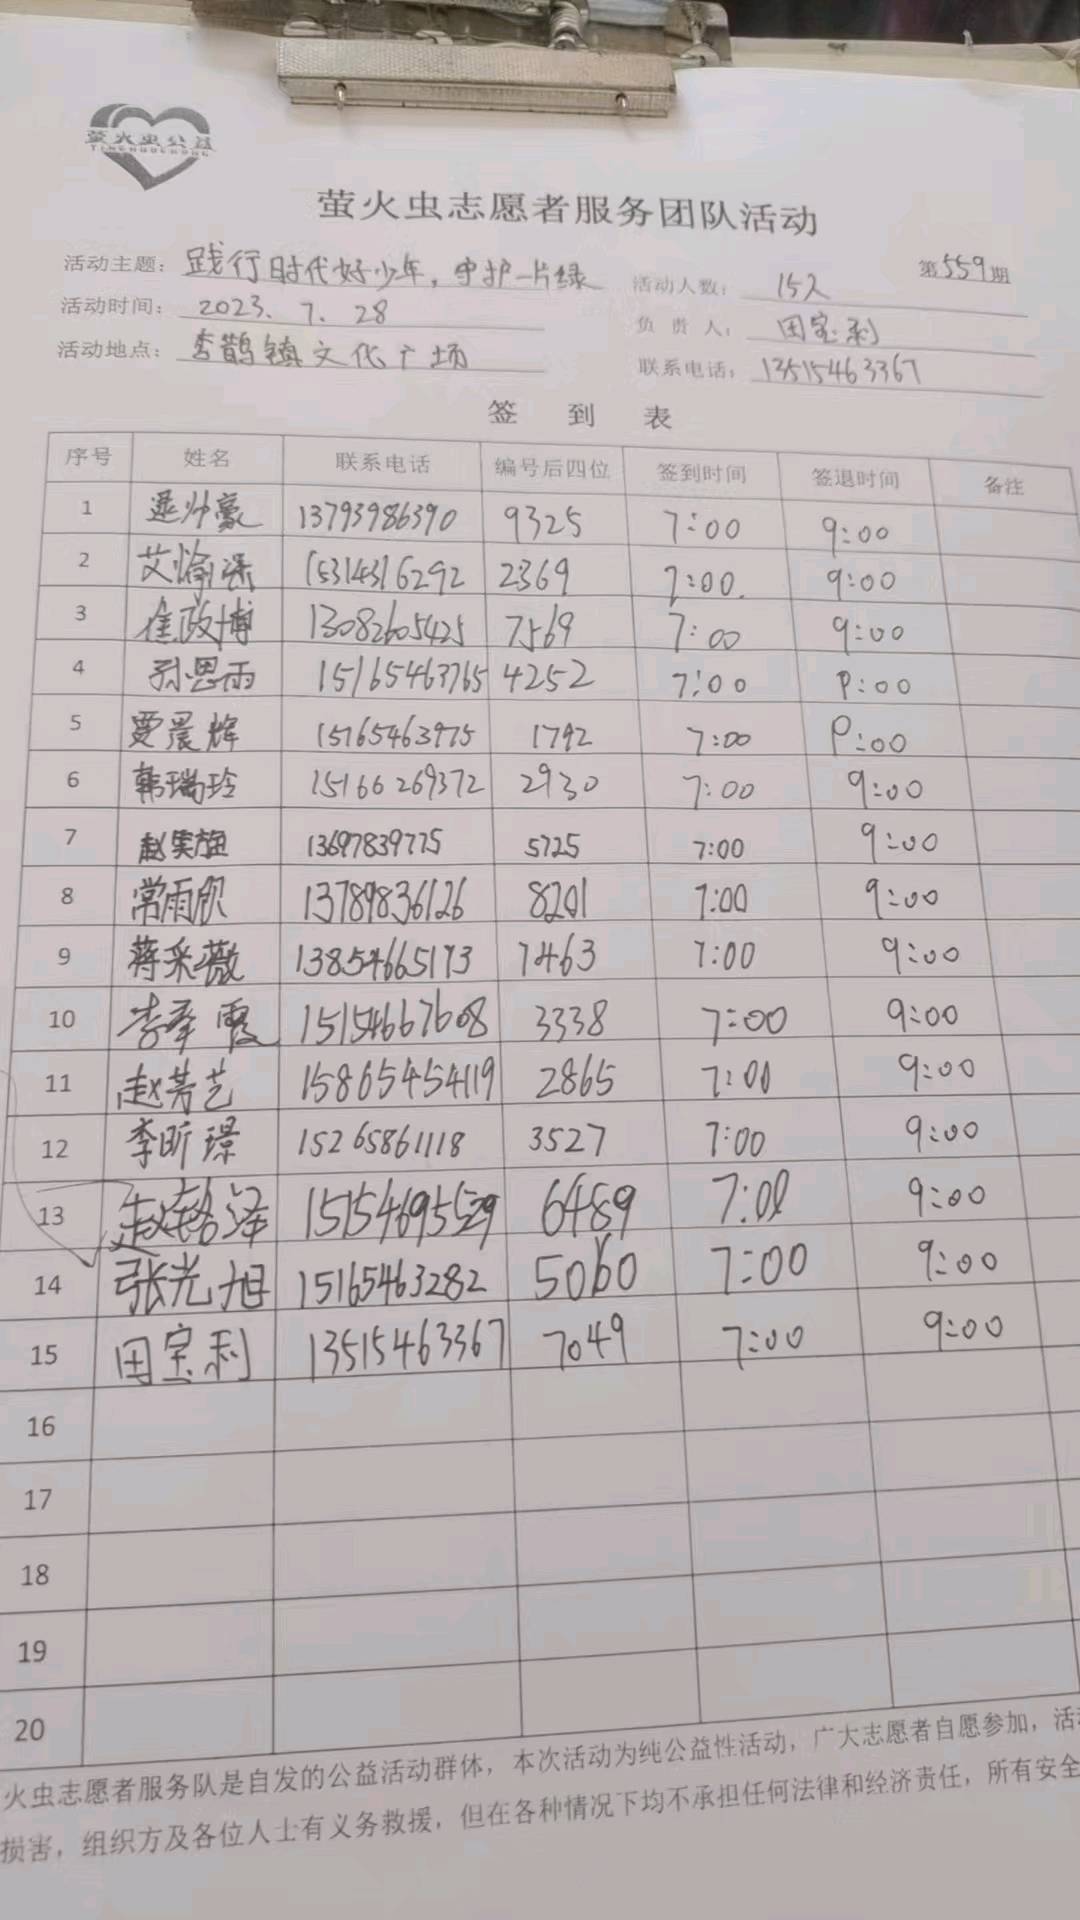 萤火虫公益
YINGHUOCHONG
萤火虫志愿者服务团队活动
第559期
活动主题：践行时代好少年，守护一片绿 活动人数：15人
活动时间：2023.7.28 负责人：田宝利
活动地点：李鹊镇文化广场 联系电话：13515463367
签到表
序号 姓名 联系电话 编号后四位 签到时间 签退时间 备注
1 帅豪 13793986390 9325 7:00 9:00
2 艾 15314316292 2369 7:00. 9:00
3 崔政博 13082605425 7569 7:00 9:00
4 孙恩雨 15165463765 4252 7:00 9:00
5 贾晨辉 15165463975 1792 7:00 9:00
6 韩瑞玲 15166269372 2930 7:00 9:00
7 赵 13697839775 5725 7:00 9:00
8 常雨 13789836126 8201 7:00 9:00
9 蒋采薇 13854665193 7463 7:00 9:00
10 李 霞 15154667608 3338 7:00 9:00
11 赵芳艺 15865454119 2865 7:00 9:00
12 李昕璟 15265861118 3527 7:00 9:00
13 赵 泽 6489 7:00 9:00
14 张光旭 15165463282 5060 7:00 9:00
15 田宝利 13515463367 7049 7:00 9:00
16
17
18
19
20
火虫志愿者服务队是自发的公益活动群体，本次活动为纯公益性活动，广大志愿者自愿参加，活动
损害，组织方及各位人士有义务救援，但在各种情况下均不承担任何法律和经济责任，所有安全